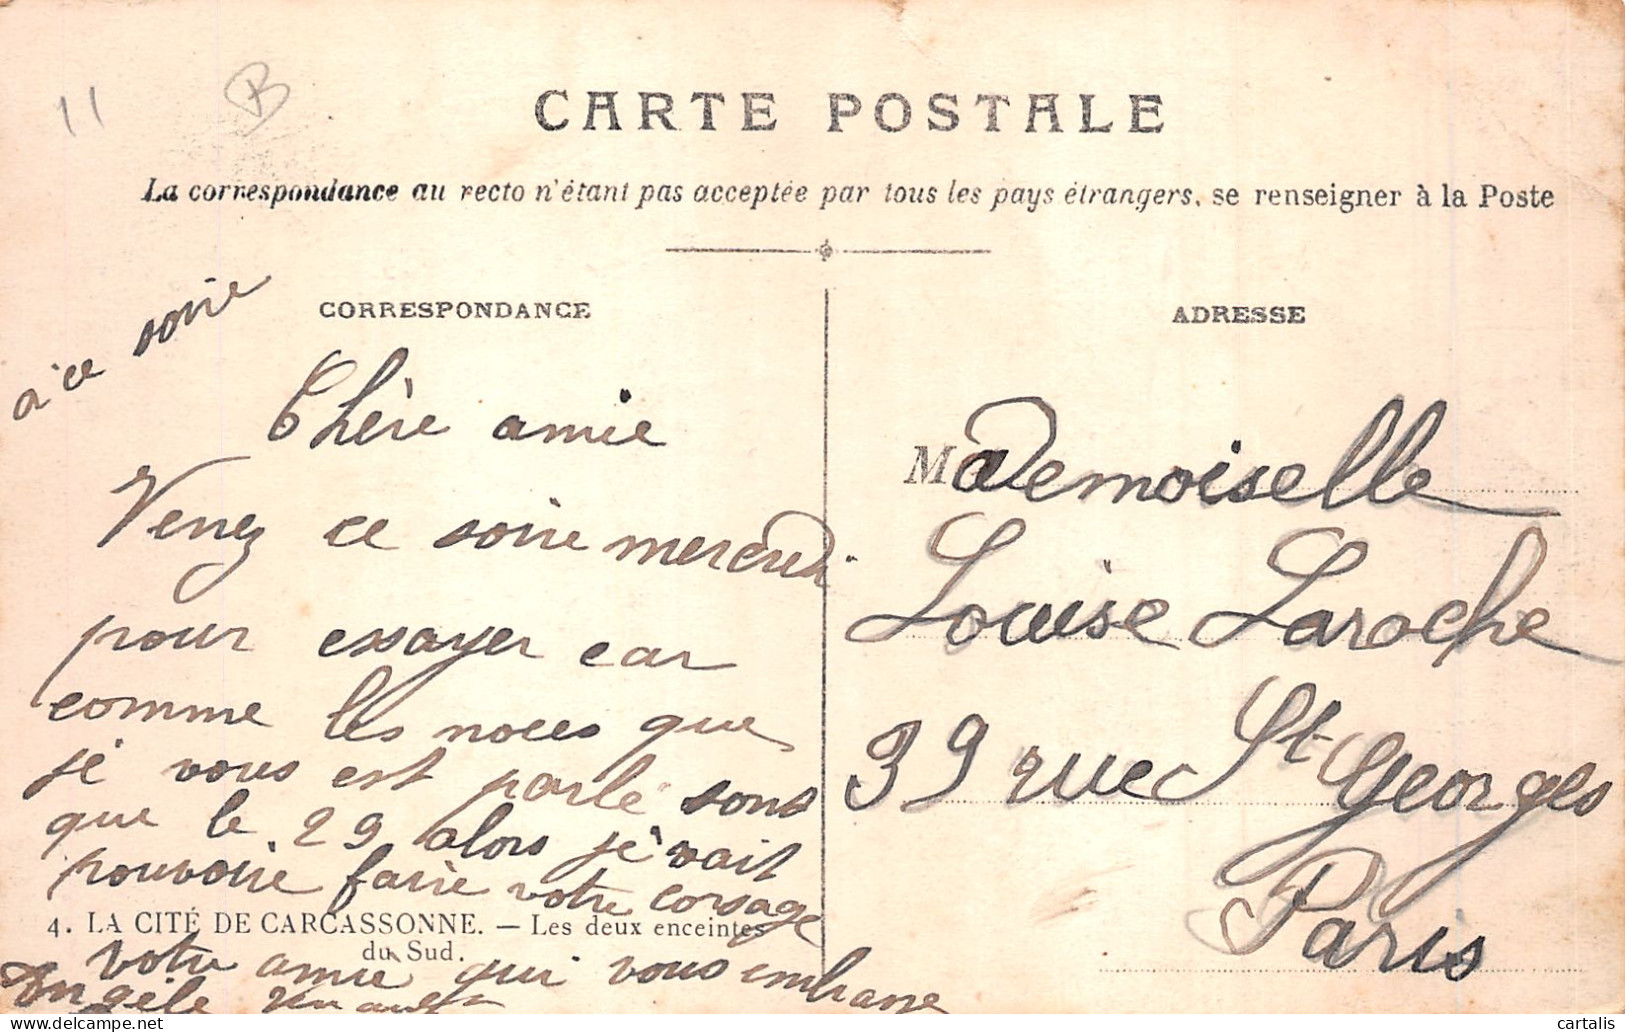 11
B
CARTE POSTALE
La correspondance au recto n'étant pas acceptée par tous les pays étrangers, se renseigner à la Poste
CORRESPONDANCE
à ce soire
Chère amie
Venez ce soire mercredi
pour essayer car
comme les noces que
je vous est parlé sons
que le 29 alors je vait
pouvoire faire votre corsage
4. LA CITÉ DE CARCASSONNE. — Les deux enceintes
du Sud.
votre amie qui vous embrasse
Angèle
ADRESSE
Mademoiselle
Louise Laroche
39 rue St Georges
Paris
cartalis